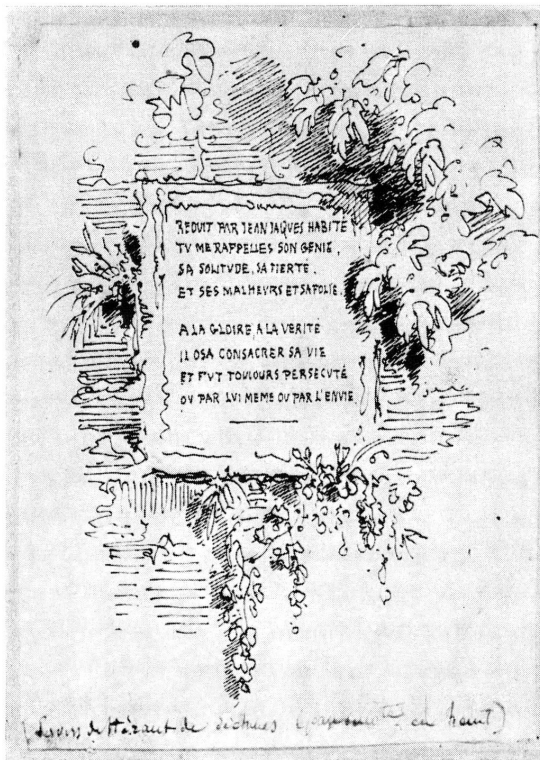 REDUIT PAR JEAN JAQUES HABITE
TV ME RAPPELLES SON GENIE,
SA SOLITUDE, SA FIERTE,
ET SES MALHEVRS ET SA FOLIE.
A LA GLOIRE, A LA VERITE
IL OSA CONSACRER SA VIE
ET FVT TOUIOURS PERSECUTÉ
OV PAR LVI MEME OV PAR L'ENVIE
de en haut)